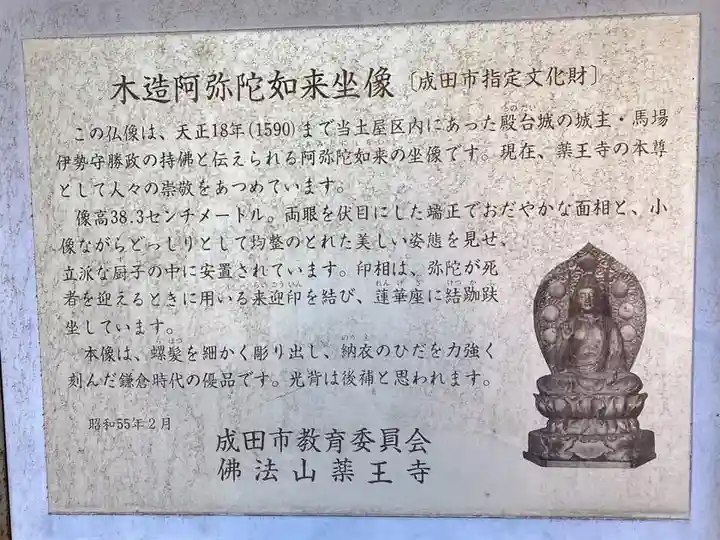 木造阿弥陀如来坐像〔成田市指定文化財〕
この仏像は、天正18年(1590)まで当土屋区内にあった殿台城の城主・馬場
伊勢守勝政の持佛と伝えられる阿弥陀如来の坐像です。現在、薬王寺の本尊
として人々の崇敬をあつめています。
像高38.3センチメートル。両眼を伏目にした端正でおだやかな面相と、小
像ながらどっしりとして均整のとれた美しい姿態を見せ、
立派な厨子の中に安置されています。印相は、弥陀が死
者を迎えるときに用いる来迎印を結び、蓮華座に結跏趺
坐しています。
本像は、螺髪を細かく彫り出し、納衣のひだを力強く
刻んだ鎌倉時代の優品です。光背は後補と思われます。
昭和55年2月
成田市教育委員会
佛法山薬王寺